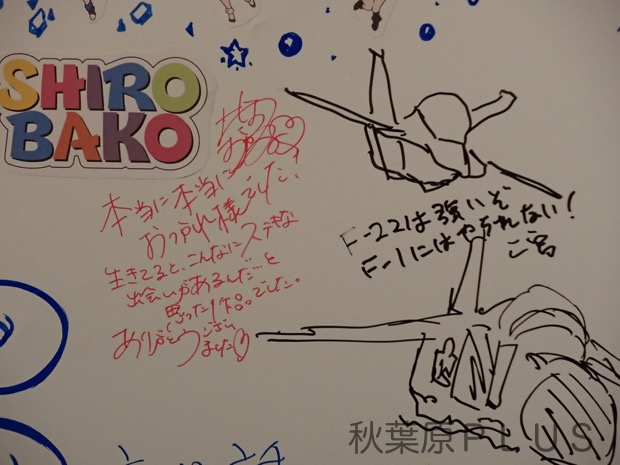 SHIRO
BAKO
本当に本当に
おつかれ様でした。
生きてると、こんなにステキな
出会いがあるんだ…と
思った1作品でした。
ありがとうござい
ました
F-22は強いぞ
F-1にはやられない!
秋葉原PLUS